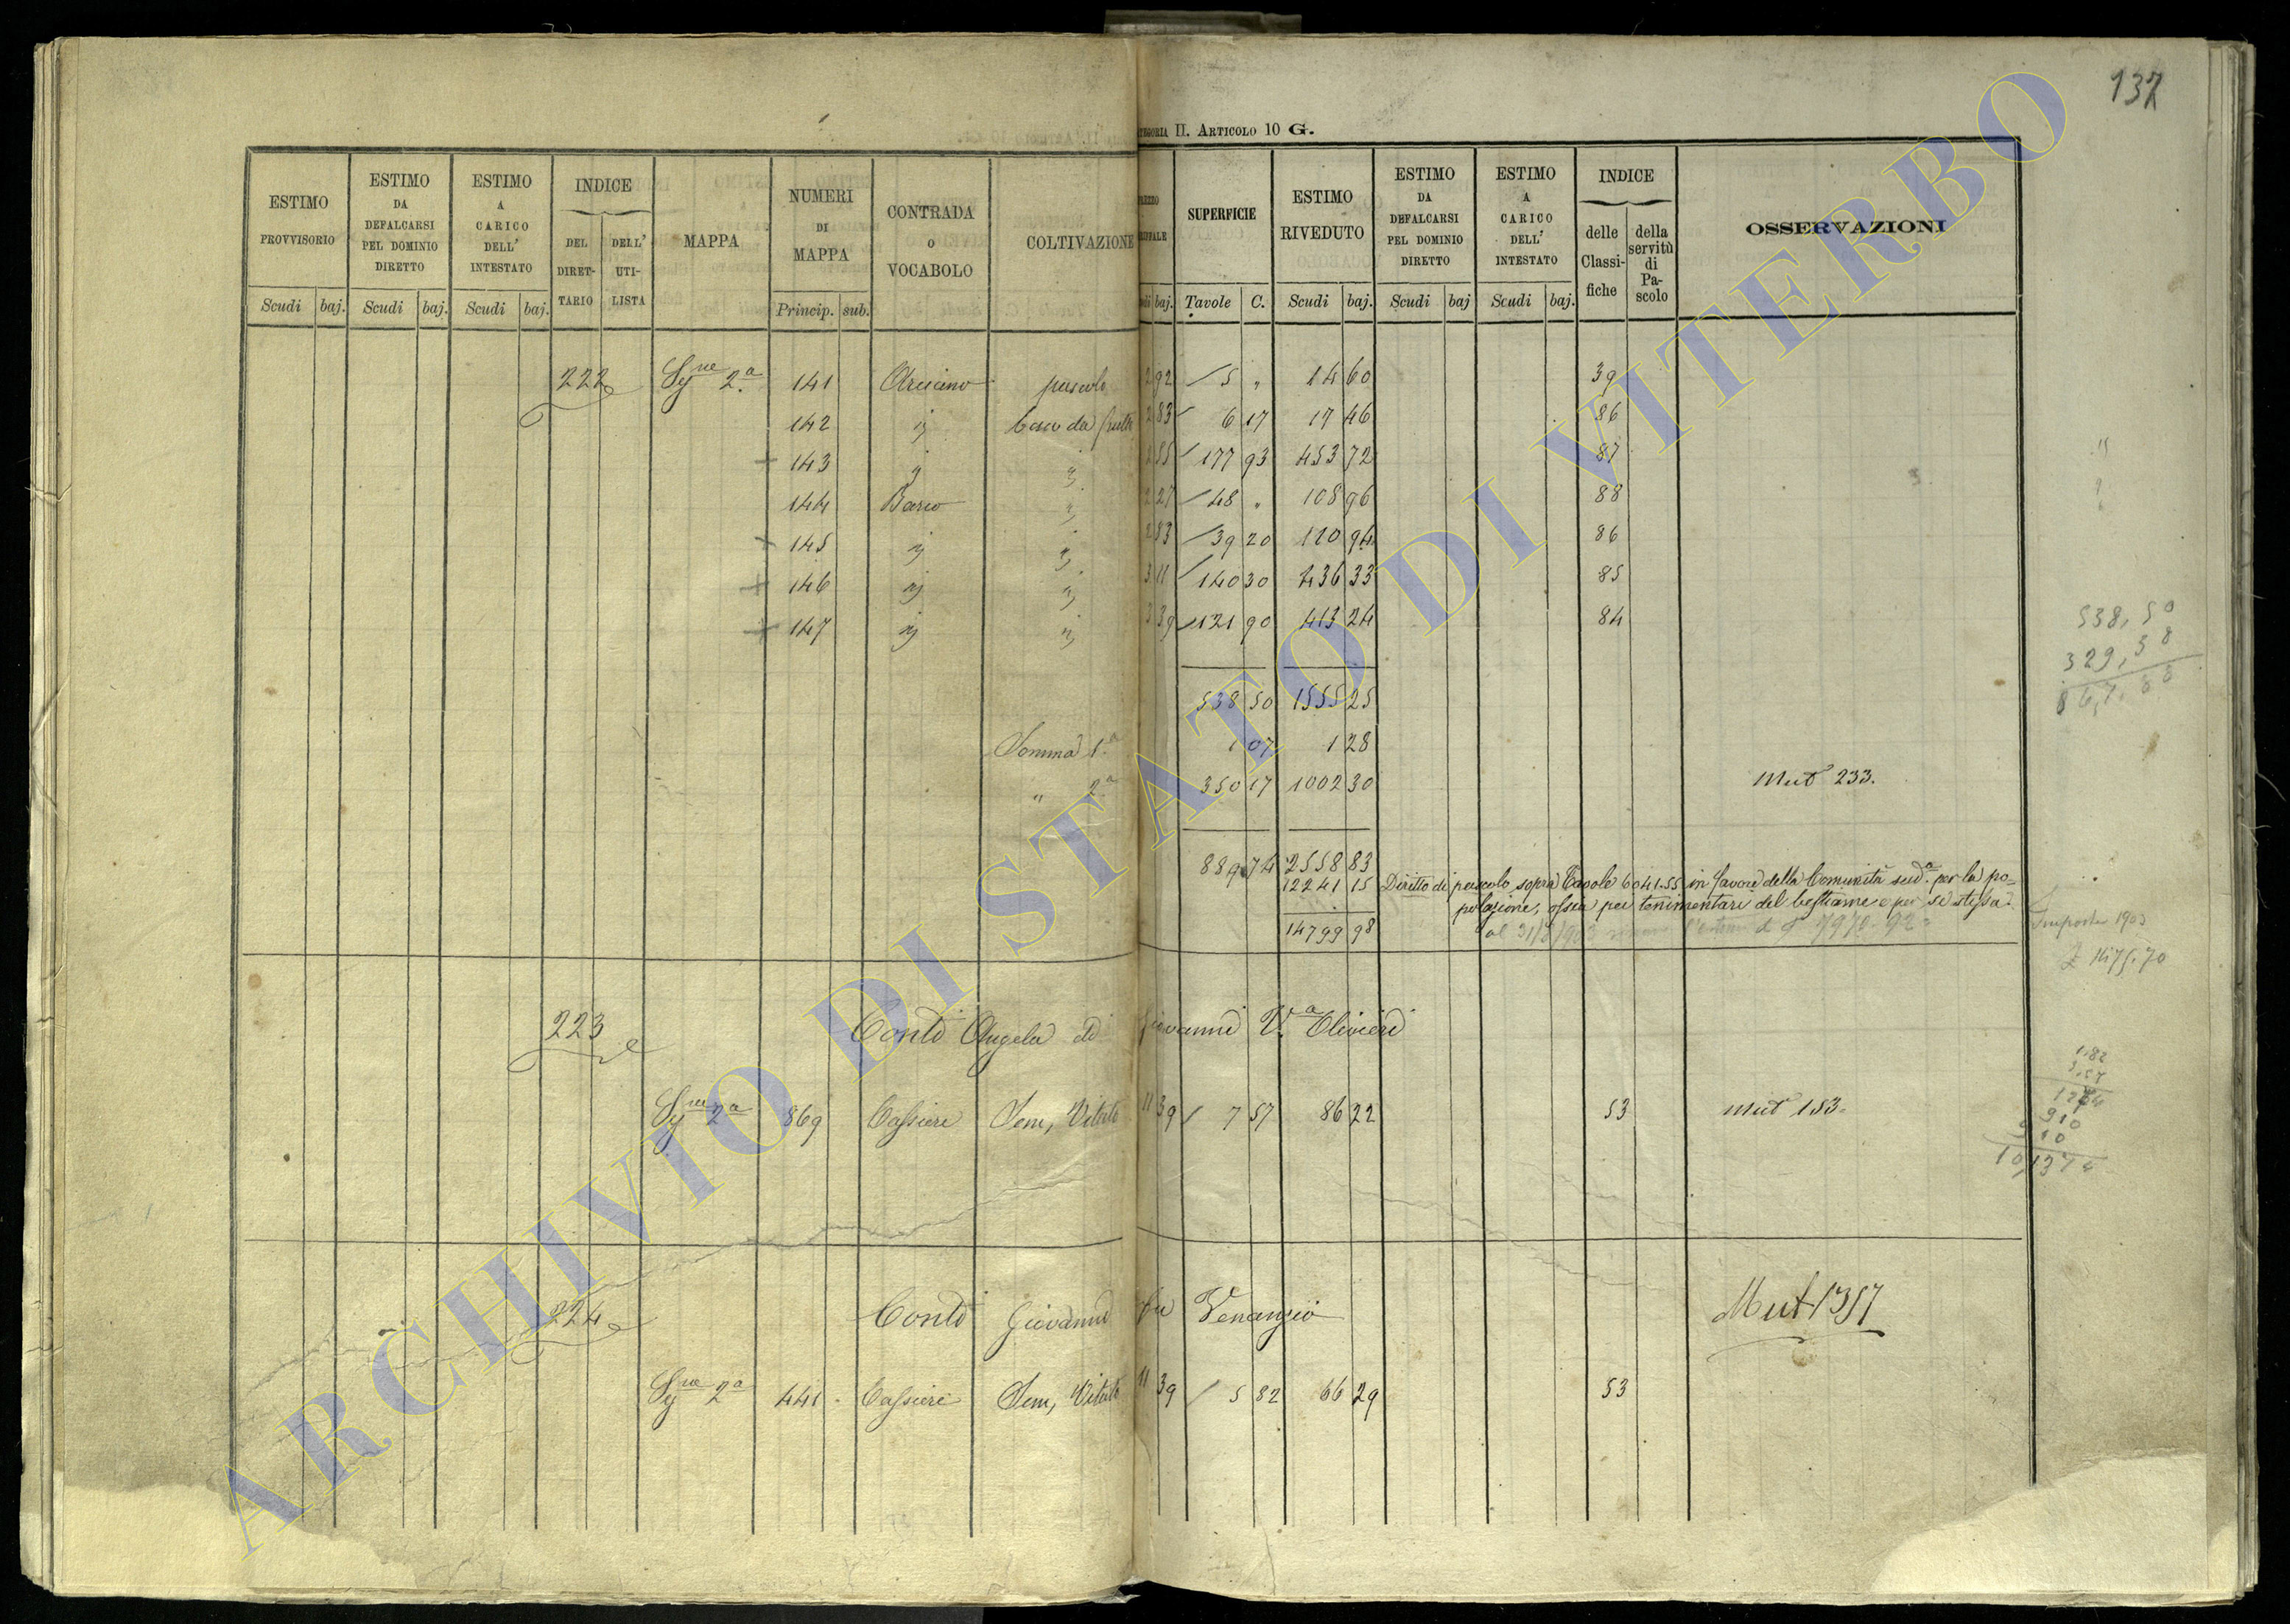 137
CATEGORIA II. ARTICOLO 10 G.
ESTIMO PROVVISORIO
Scudi baj.
ESTIMO DA DEFALCARSI PEL DOMINIO DIRETTO
Scudi baj.
ESTIMO A CARICO DELL' INTESTATO
Scudi baj.
INDICE
DEL DIRET-TARIO
DELL' UTI-LISTA
MAPPA
NUMERI DI MAPPA
Princip. sub.
CONTRADA O VOCABOLO
COLTIVAZIONE
baj.
SUPERFICIE
Tavole C.
ESTIMO RIVEDUTO
Scudi baj.
ESTIMO DA DEFALCARSI PEL DOMINIO DIRETTO
Scudi baj
ESTIMO A CARICO DELL' INTESTATO
Scudi baj.
INDICE
delle Classi-fiche
della servitù di Pa-scolo
OSSERVAZIONI
222 Sy.ne 2.a 141 pascolo 2 92 5 „ 14 60 39
142 bosco da frutto 2 83 6 17 17 46 86
143 2 55 177 93 453 72 87
144 Barco 2 27 48 „ 108 96 88
145 2 83 39 20 110 94 86
146 3 11 140 30 436 33 85
147 3 39 121 90 413 24 84
538 50 1555 25
Somma 1.a 1 07 1 28
„ 2.a 350 17 1002 30 Mut 233.
889 74 2558 83
12241 15 Diritto di pascolo sopra Tavole 6041.55 in favore della Comunità sud.a per la po=
polazione, ossia pei tenimentari del bestiame e per se stessa.
14799 98
538,50
329,38
867,88
Imposta 1903
£ 1475.70
223 Conti Angela di Giovanni V.a Olivieri
Sy.ne 2a 869 Cassiere Sem, Vitato 11 39 7 57 86 22 53 Mut 153.
224 Conti Giovanni fu Venanzio
Mut 1317
Sy.ne 2a 441 Cassiere Sem, Vitato 11 39 5 82 66 29 53
ARCHIVIO DI STATO DI VITERBO